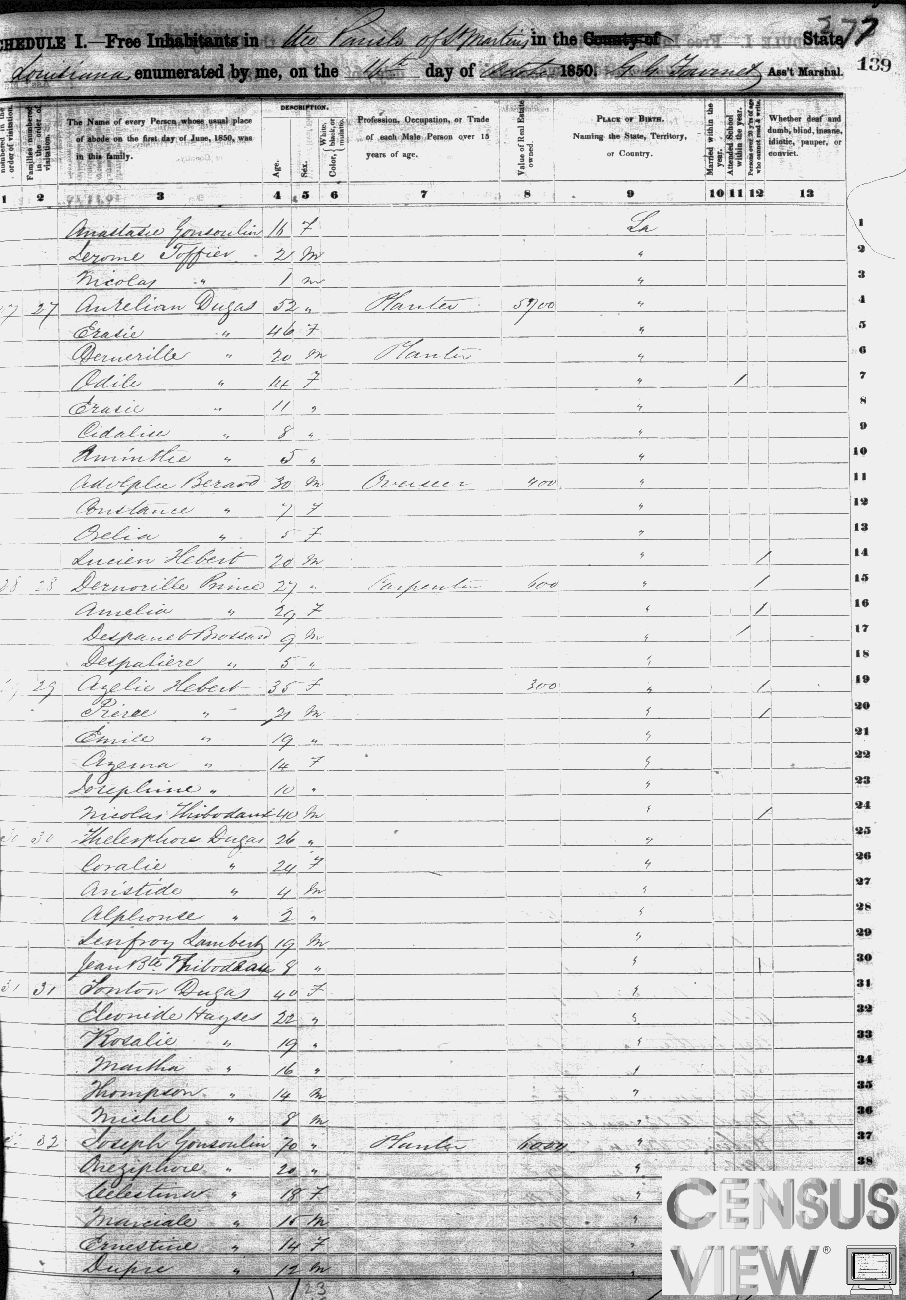 377
SCHEDULE I.—Free Inhabitants in the Parish of St Martins in the County of State
Louisiana enumerated by me, on the 16th day of October 1850. Ass't Marshal.
139
numbered in the order of visitation.
Families numbered in the order of visitation.
The Name of every Person whose usual place of abode on the first day of June, 1850, was in this family.
DESCRIPTION.
Age.
Sex.
Color, { White, black, or mulatto.
Profession, Occupation, or Trade of each Male Person over 15 years of age.
Value of Real Estate owned.
PLACE OF BIRTH.
Naming the State, Territory, or Country.
Married within the year.
Attended School within the year.
Persons over 20 y'rs of age who cannot read & write.
Whether deaf and dumb, blind, insane, idiotic, pauper, or convict.
1 2 3 4 5 6 7 8 9 10 11 12 13
Anastasie Gonsoulin 16 F La 1
Jerome Toffier 21 M " 2
Nicolas " 1 m " 3
27 27 Aurelian Dugas 52 " Planter 5700 " 4
Erasie " 46 F " 5
Derneville " 20 M Planter " 6
Odile " 14 F " / 7
Erasie " 11 " " 8
Cidalise " 8 " " 9
Aminthe " 5 " " 10
Adolphe Berard 30 M Overseer 400 " 11
Constance " 7 F " 12
Orelia " 5 F " 13
Lucien Hebert 20 M " / 14
28 28 Dernoville Prince 27 " Carpenter 600 " / 15
Amelia " 29 F " / 16
Despanet Brossard 9 M " / 17
Despaliere " 5 " " 18
29 29 Azelie Hebert 35 F 300 " / 19
Pierre " 21 M " / 20
Emile " 19 " " 21
Azema " 14 F " 22
Josephine " 10 " " 23
Nicolas Thibodaux 40 M " / 24
30 30 Thelesphore Dugas 26 " " 25
Coralie " 24 F " 26
Aristide " 4 M " 27
Alphonse " 2 " " 28
Lenfroy Lambert 19 M " 29
Jean Bte Thibodeau 8 " " / 30
31 31 Tonton Dugas 40 F " 31
Cleonide Hayses 22 " " 32
Rosalie " 19 " " 33
Martha " 16 " " 34
Thompson " 14 M " 35
Michel " 8 M " 36
32 Joseph Gonsoulin 70 " Planter 6000 " 37
Oneziphore " 20 " " 38
Celestina " 18 F "
Marciale " 15 M "
Ernestine " 14 F "
Dupre " 12 M
23
CENSUS
VIEW®